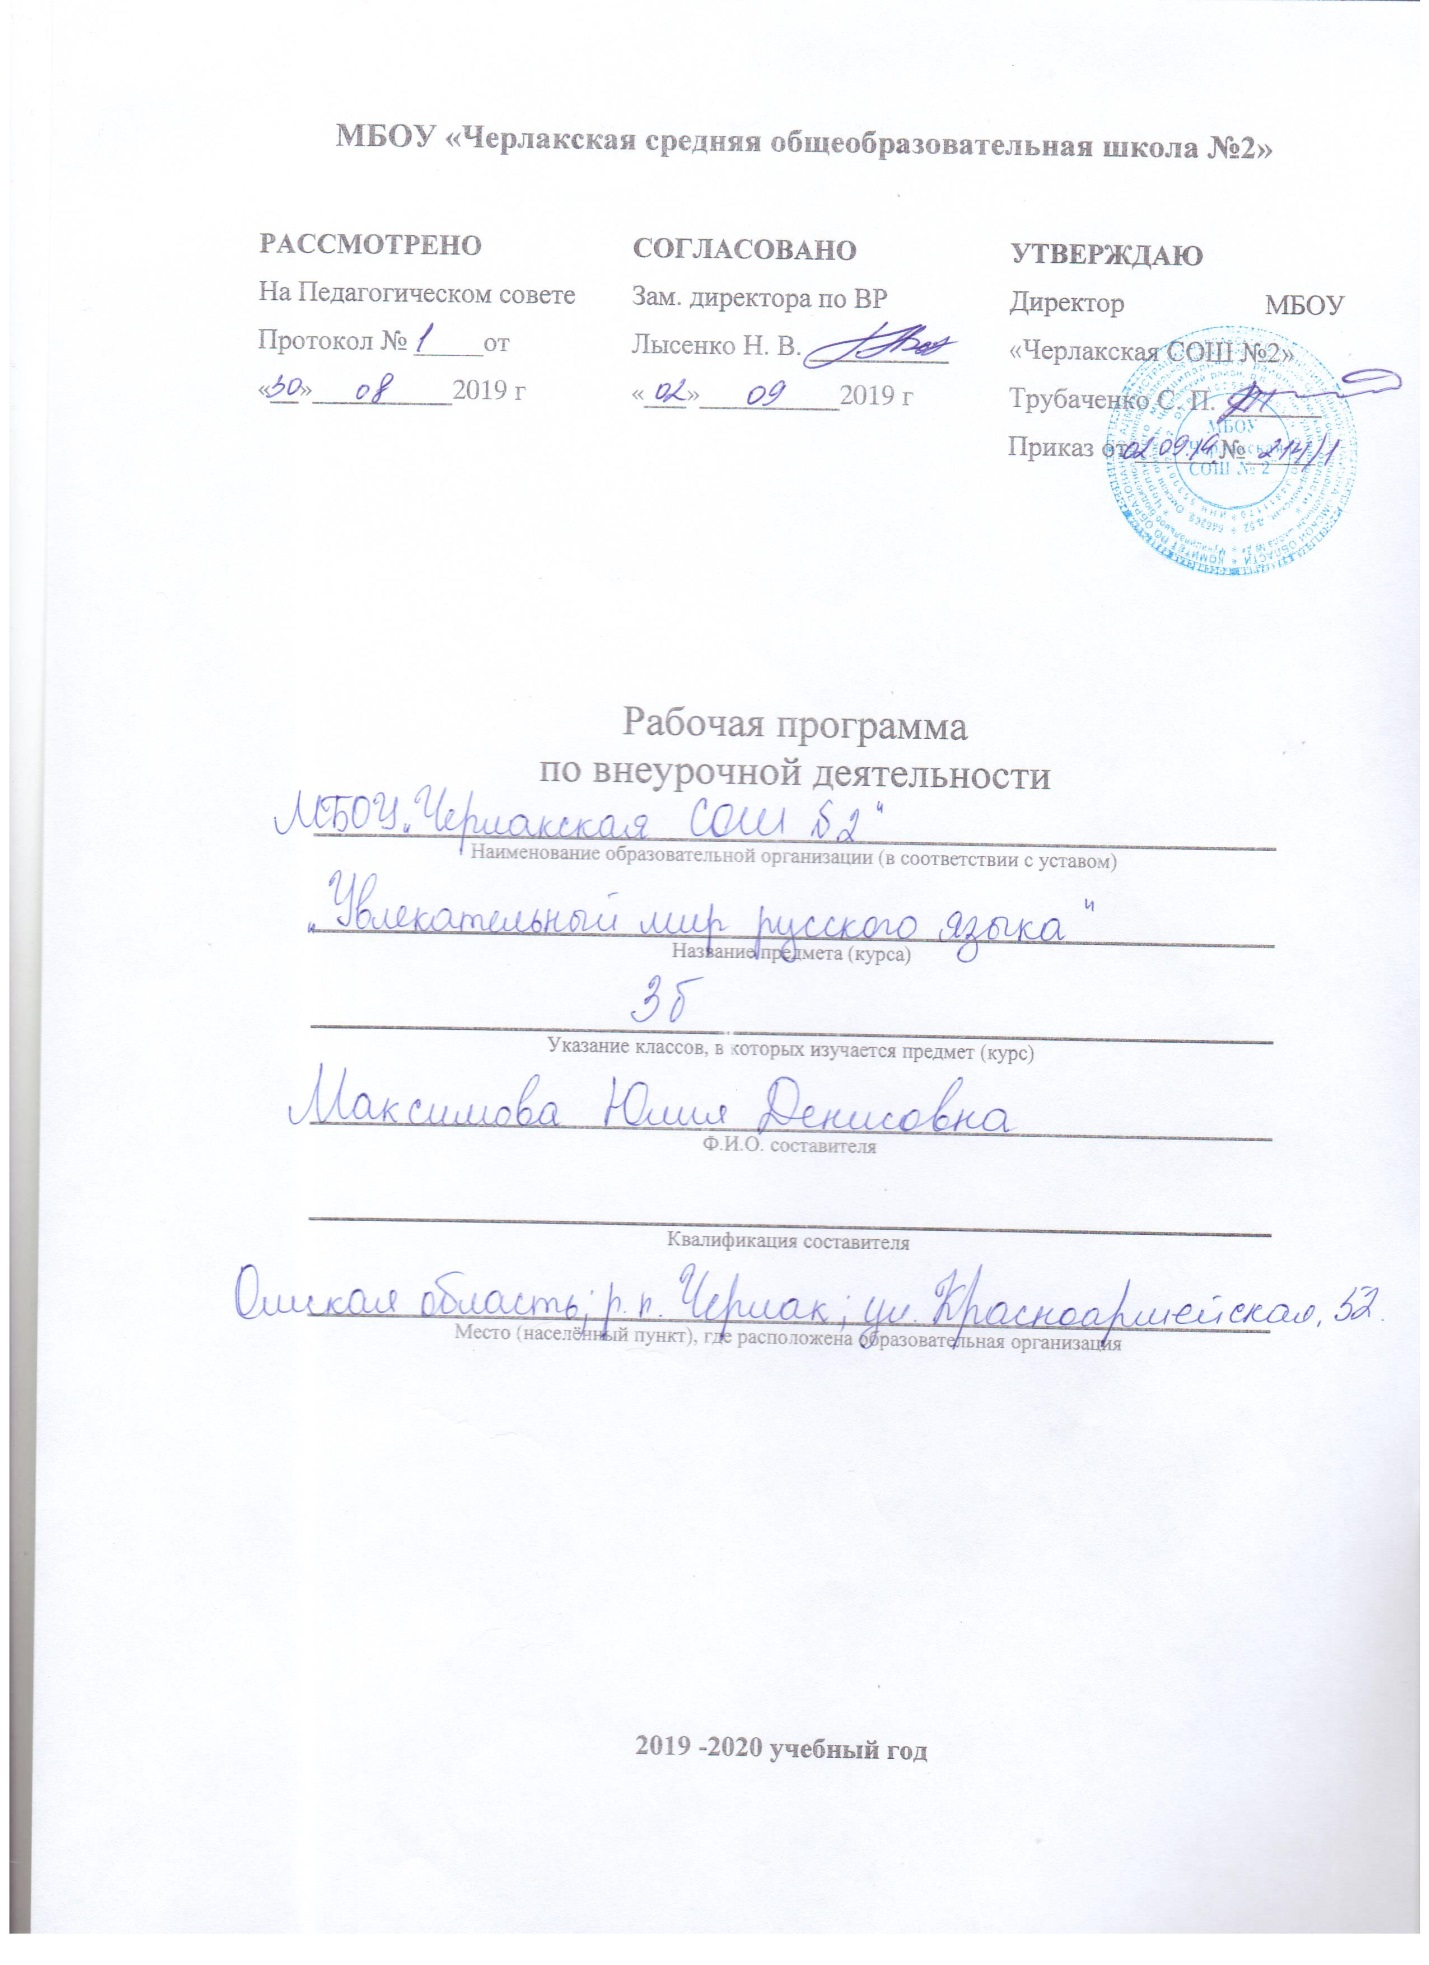 МБОУ «Черлакская средняя общеобразовательная школа №2»
РАССМОТРЕНО
На Педагогическом совете
Протокол № 1 от
«30» 08 2019 г
СОГЛАСОВАНО
Зам. директора по ВР
Лысенко Н. В.
«02» 09 2019 г
УТВЕРЖДАЮ
Директор МБОУ
«Черлакская СОШ №2»
Трубаченко С. П.
Приказ от 02.09.19 № 214/1
МБОУ
СОШ № 2
Рабочая программа
по внеурочной деятельности
МБОУ „Черлакская СОШ №2"
Наименование образовательной организации (в соответствии с уставом)
„Увлекательный мир русского языка"
Название предмета (курса)
3б
Указание классов, в которых изучается предмет (курс)
Максимова Юлия Денисовна
Ф.И.О. составителя
Квалификация составителя
Омская область; р.п. Черлак; ул. Красноармейская, 52.
Место (населённый пункт), где расположена образовательная организация
2019 -2020 учебный год